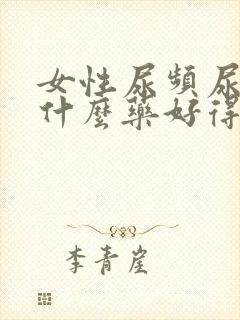 女性尿頻尿
什麼藥好得
李青崖